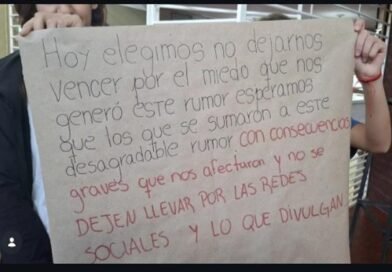 Hoy elegimos no dejarnos
vencer por el miedo que nos
generó este rumor esperamos
que los que se sumaron a este
desagradable rumor con consecuencias
graves que nos afectaron y no se
DEJEN LLEVAR POR LAS REDES
SOCIALES Y LO QUE DIVULGAN